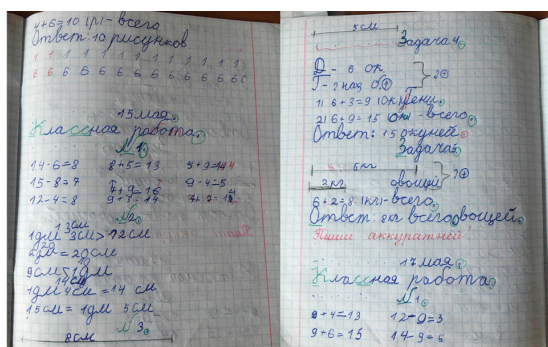 4+6=10 (р)-всего
Ответ: 10 рисунков
1 1 1 1 1 1 1 1 1 1 1 1 1
6 6 6 6 6 6 6 6 6 6 6 6 6
15 мая.
Классная работа.
№1.
14-6=8 8+5=13 5+9=14
15-8=7 7+9=16 9-4=5
12-4=8 9+5=14 7+7=14
№2.
13см
1дм 3см > 12см
20
2дм = 20см
10
9см < 1дм
14см
1дм 4см = 14 см
15см = 1дм 5см
№3.
8см
5см
Задача 4.
Д - 6 ок
Т - ? на 3 б
1) 6+3=9 (ок)
2) 6+9=15 (ок)-всего
Ответ: 15 окуней.
Задача
6кг
2кг овощей
6+2=8 (кг)-всего
Ответ: 8кг всего овощей.
Пиши аккуратней!
17 мая.
Классная работа.
№1.
9+4=13 12-9=3
9+6=15 14-9=6